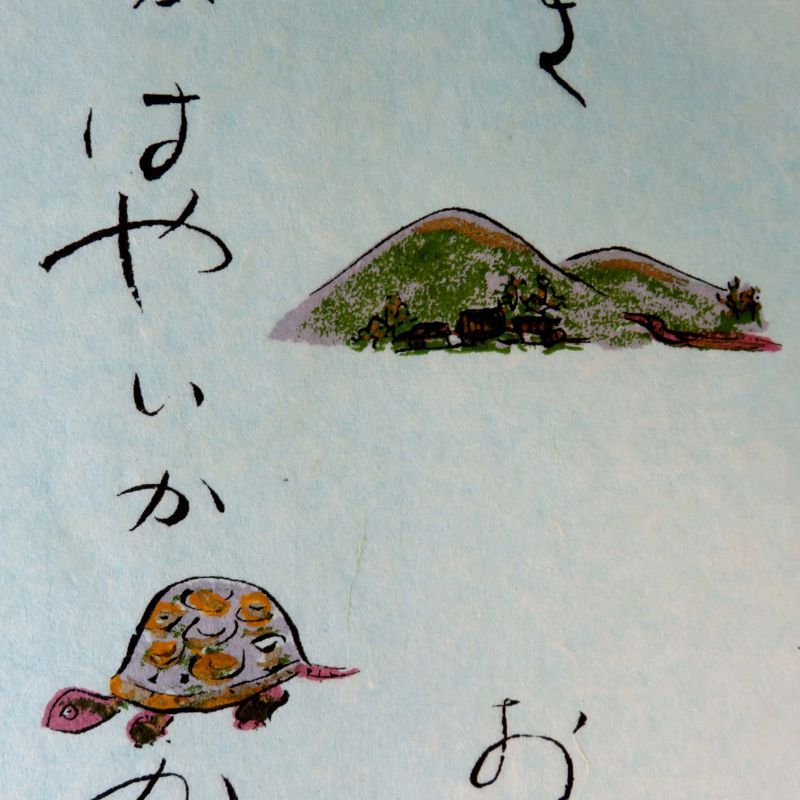 お
はやいか
か